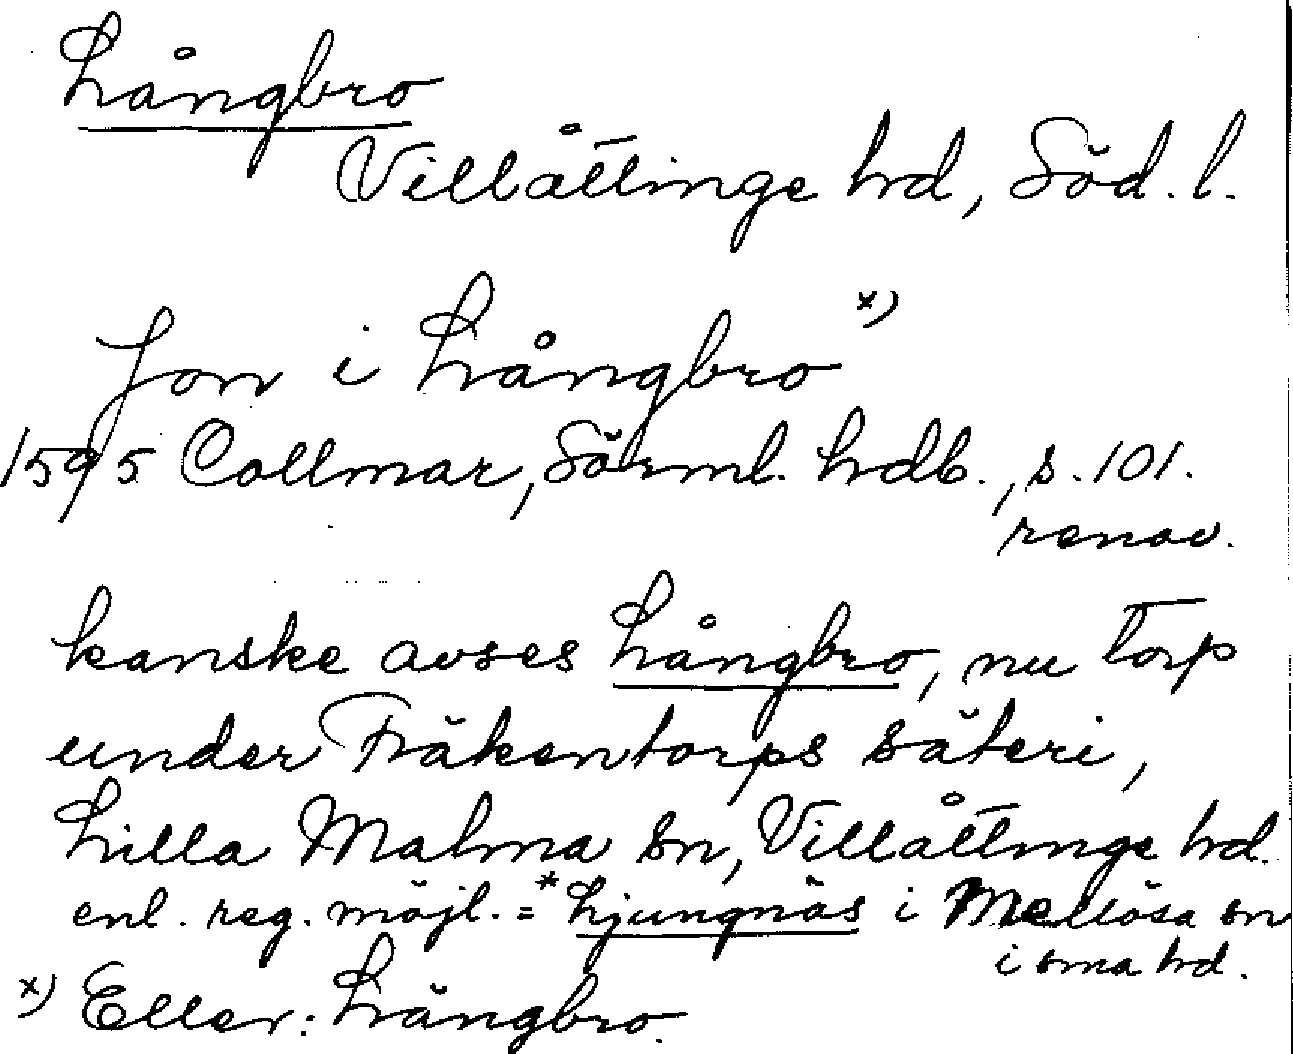 Långbro
Villåttinge hd, Söd. l.
Jon i Långbro x)
1595 Collmar, Sörml. hdb., s. 101.
renov.
kanske avses Långbro, nu torp
under Fräkentorps säteri,
Lilla Malma sn, Villåttinge hd.
enl. reg. möjl. = *Ljungnäs i Mellösa sn
i sma hd.
x) Eller: Längbro.